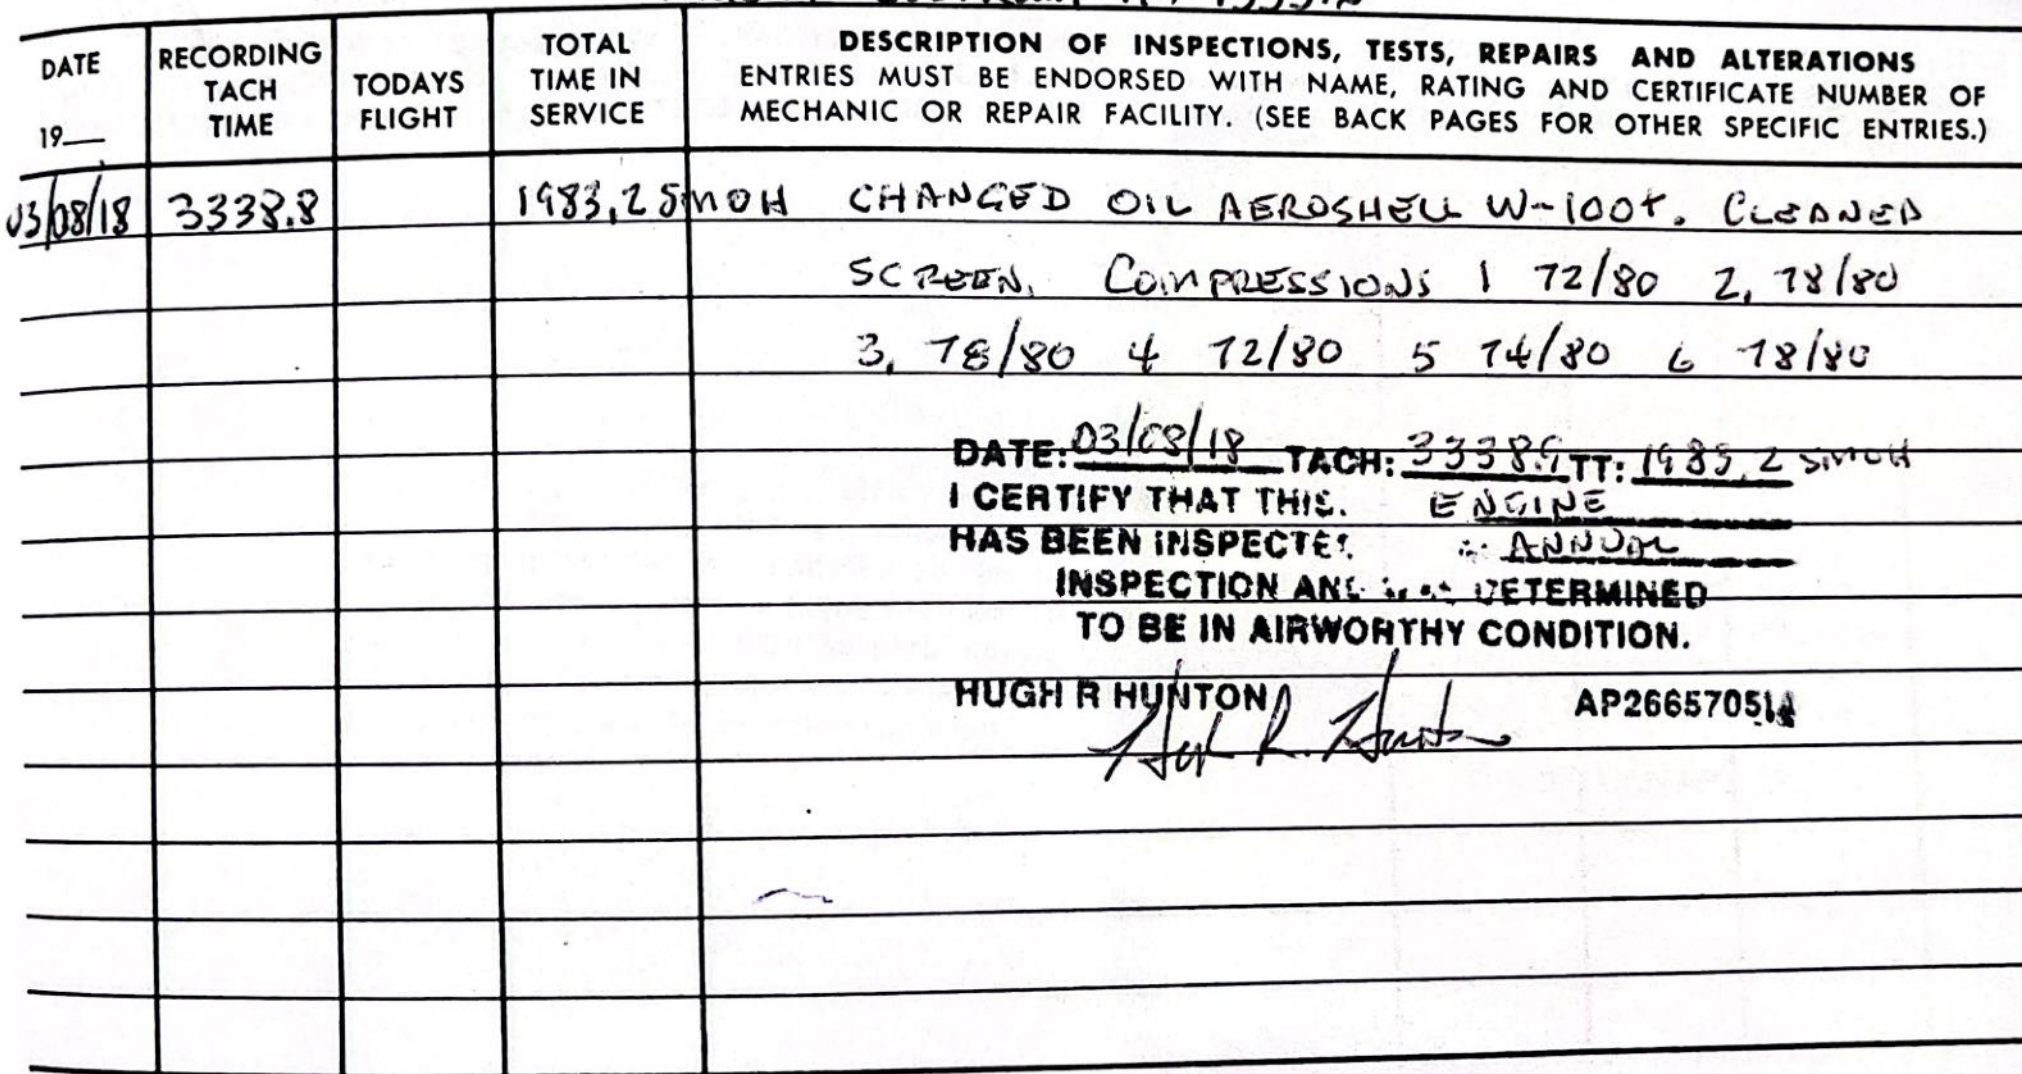 DATE
19__
RECORDING
TACH
TIME
TODAYS
FLIGHT
TOTAL
TIME IN
SERVICE
DESCRIPTION OF INSPECTIONS, TESTS, REPAIRS AND ALTERATIONS
ENTRIES MUST BE ENDORSED WITH NAME, RATING AND CERTIFICATE NUMBER OF
MECHANIC OR REPAIR FACILITY. (SEE BACK PAGES FOR OTHER SPECIFIC ENTRIES.)
03/08/18 3338.8 1983.2 SMOH CHANGED OIL AEROSHELL W-100+. CLEANED
SCREEN. COMPRESSIONS 1 72/80 2, 78/80
3, 78/80 4 72/80 5 74/80 6 78/80
DATE: 03/08/18 TACH: TT: 1983.2 SMOH
I CERTIFY THAT THIS ENGINE
HAS BEEN INSPECTE ANNUAL
INSPECTION AND DETERMINED
TO BE IN AIRWORTHY CONDITION.
HUGH R HUNTON
Hugh R. Hunton